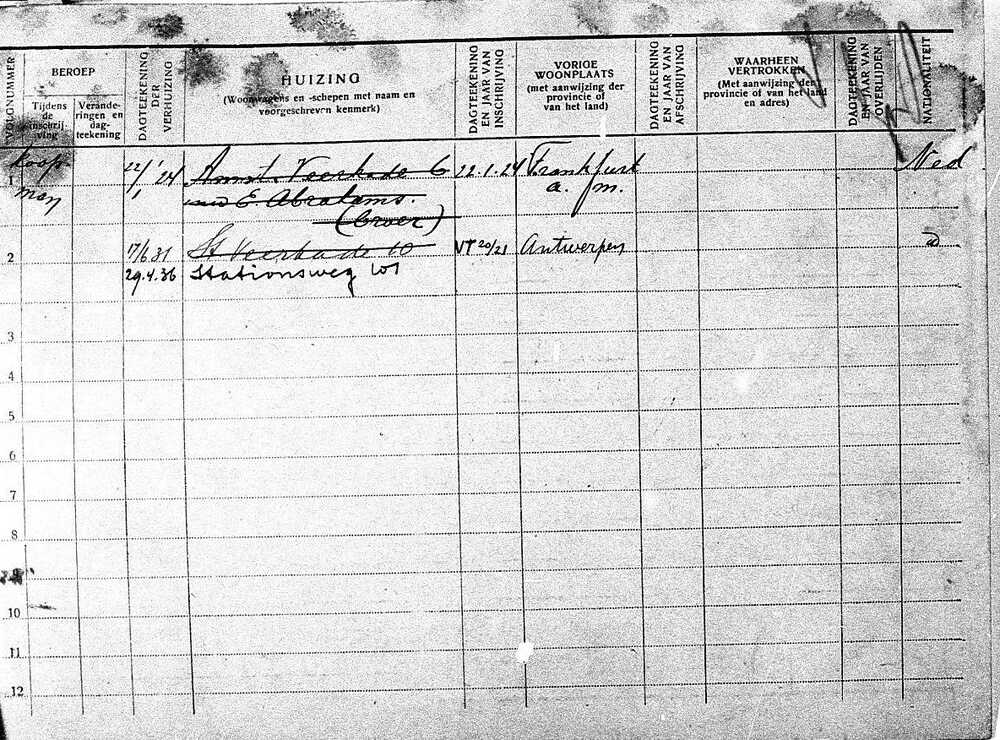 VOLGNUMMER
BEROEP
Tijdens de inschrij- ving
Verande- ringen en dag- teekening
DAGTEEKENING DER VERHUIZING
HUIZING
(Woonwagens en -schepen met naam en
voorgeschreven kenmerk)
DAGTEEKENING EN JAAR VAN INSCHRIJVING
VORIGE
WOONPLAATS
(met aanwijzing der
provincie of
van het land)
DAGTEEKENING EN JAAR VAN AFSCHRIJVING
WAARHEEN
VERTROKKEN
(Met aanwijzing der
provincie of van het land
en adres)
DAGTEEKENING EN JAAR VAN OVERLIJDEN
NATIONALITEIT
koop 22/1 '24 Veerkade 6 22.1.24 Frankfurt Ned
1
man E. Abrahams. a. m.
(broer)
2 17/6 31 Veerkade 10 20/21 Antwerpen id
29.4.36 Stationsweg 101
3
4
5
6
7
8
9
10
11
12